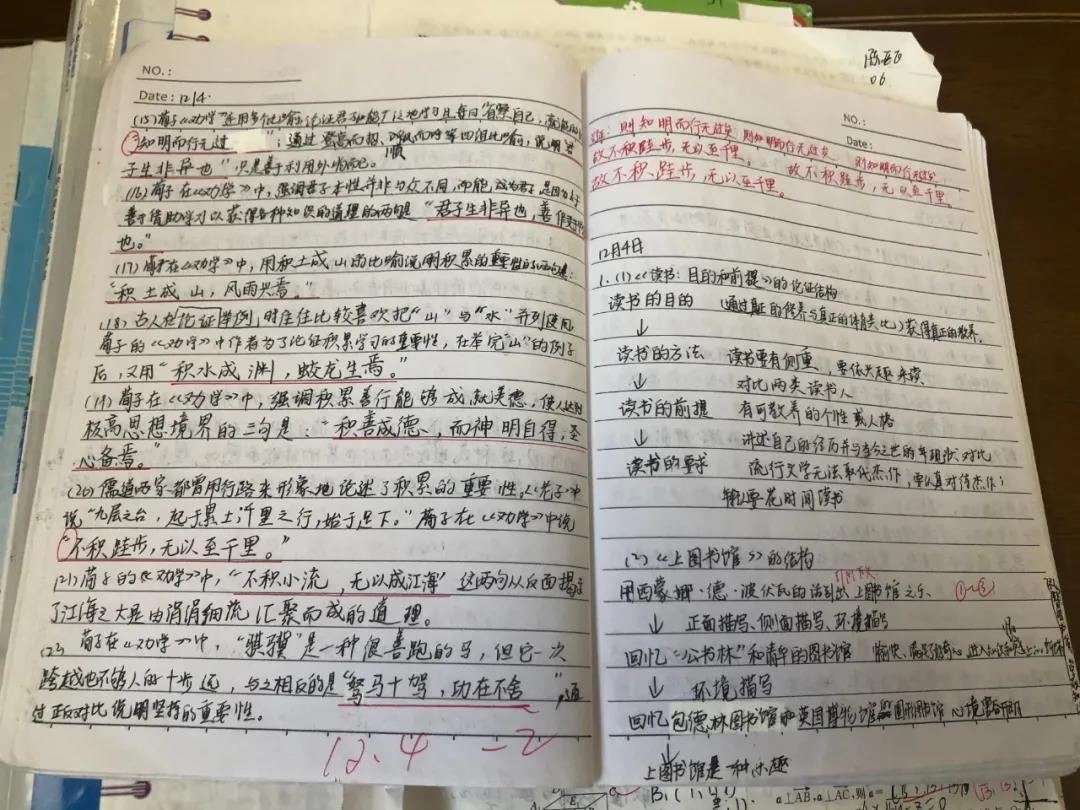 NO.:
Date: 12/4
(15)荀子《劝学》运用多个比喻论证君子如能广泛地学习且每日省察自己,
知明而行无过";通过登高而招、顺风而呼等四组比喻,说明"君
子生非异也"只是善于利用外物而已。
顺
(16)荀子在《劝学》中,强调君子本性并非与众不同,而能成为君子是因为
善于借助学习以获得各种知识的道理的两句是"君子生非异也,善假于物
也。"
(17)荀子在《劝学》中,用积土成山的比喻说明积累的重要性的两句是:
"积土成山,风雨兴焉。"
(18)古人在论证举例时往往比较喜欢把"山"与"水"并列使用,
荀子的《劝学》中作者为了论证积累学习的重要性,在举完"山"的例子
后,又用"积水成渊,蛟龙生焉。"
(19)荀子在《劝学》中,强调积累善行能够成就美德,使人达到
极高思想境界的三句是:"积善成德,而神明自得,圣
心备焉。"
(20)儒道两家都曾用行路来形象地论述了积累的重要性。《老子》中
说"九层之台,起于累土;千里之行,始于足下。"荀子在《劝学》中说
"不积跬步,无以至千里。"
(21)荀子的《劝学》中,"不积小流,无以成江海"这两句从反面揭示
了江海之大是由涓涓细流汇聚而成的道理。
(22)荀子在《劝学》中,"骐骥"是一种很善跑的马,但它一次
跨越也不够人的十步远,与之相反的是"驽马十驾,功在不舍",通
过正反对比说明坚持的重要性。
12.4 -2
06
NO.:
Date:
则知明而行无过矣 则知明而行无过矣 则知明而行无过矣
故不积跬步,无以至千里。 故不积跬步,无以至千里。
故不积跬步,无以至千里。
12月4日
1.(1)《读书:目的和前提》的论证结构
读书的目的 通过真正的修养与真正的体育类比,获得真正的教养。
↓
读书的方法 读书要有侧重、要依兴趣来读
↓ 对比两类读书人
读书的前提 有可教养的个性或人格
↓ 讲述自己的经历并与当今之世的年轻人对比
读书的要求 流行文学无法取代杰作,要认真对待杰作;
要花时间读书
(2)《上图书馆》的结构
用西蒙娜·德·波伏瓦的话引出上图书馆之乐 ①-③
↓ 正面描写、侧面描写、环境描写
回忆"公书林"和清华的图书馆 愉快、满足好奇心
↓ 环境描写
回忆包德林图书馆和英国博物馆圆形图书馆
↓
上图书馆是一种乐趣